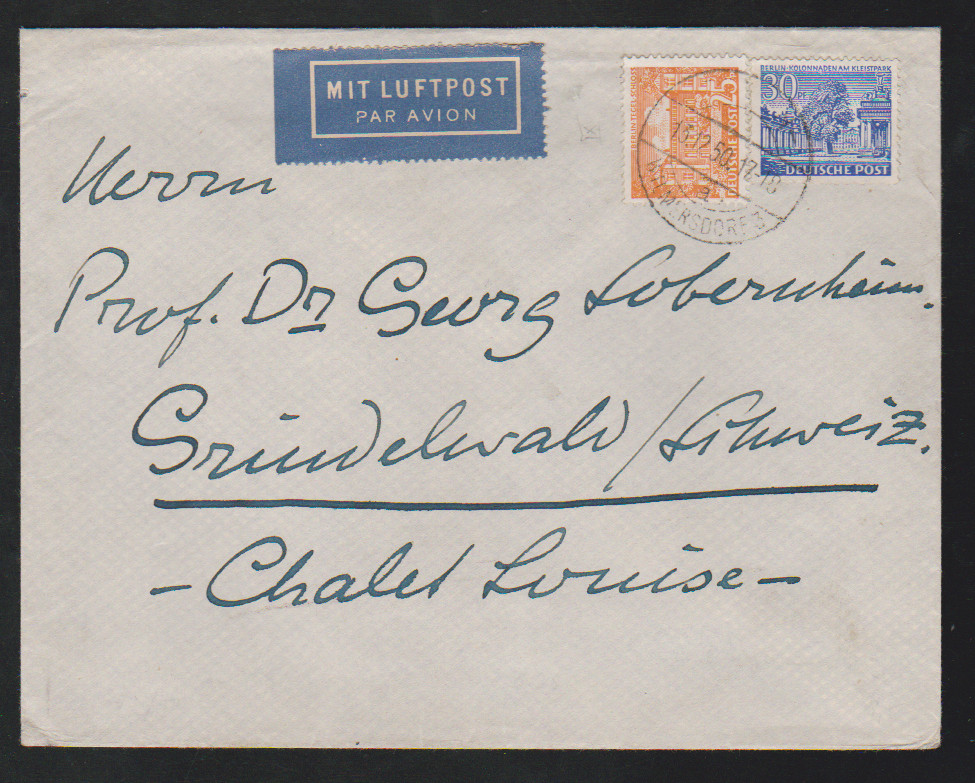 MIT LUFTPOST
PAR AVION
BERLIN TEGEL, SCHLOSS
25 PF
DEUTSCHE POST
BERLIN-KOLONNADEN AM KLEISTPARK
30 PF
DEUTSCHE POST
50.17-18
MERSDORF 3
Herrn
Prof. Dr Georg Sobernheim.
Grindelwald / Schweiz.
- Chalet Louise -